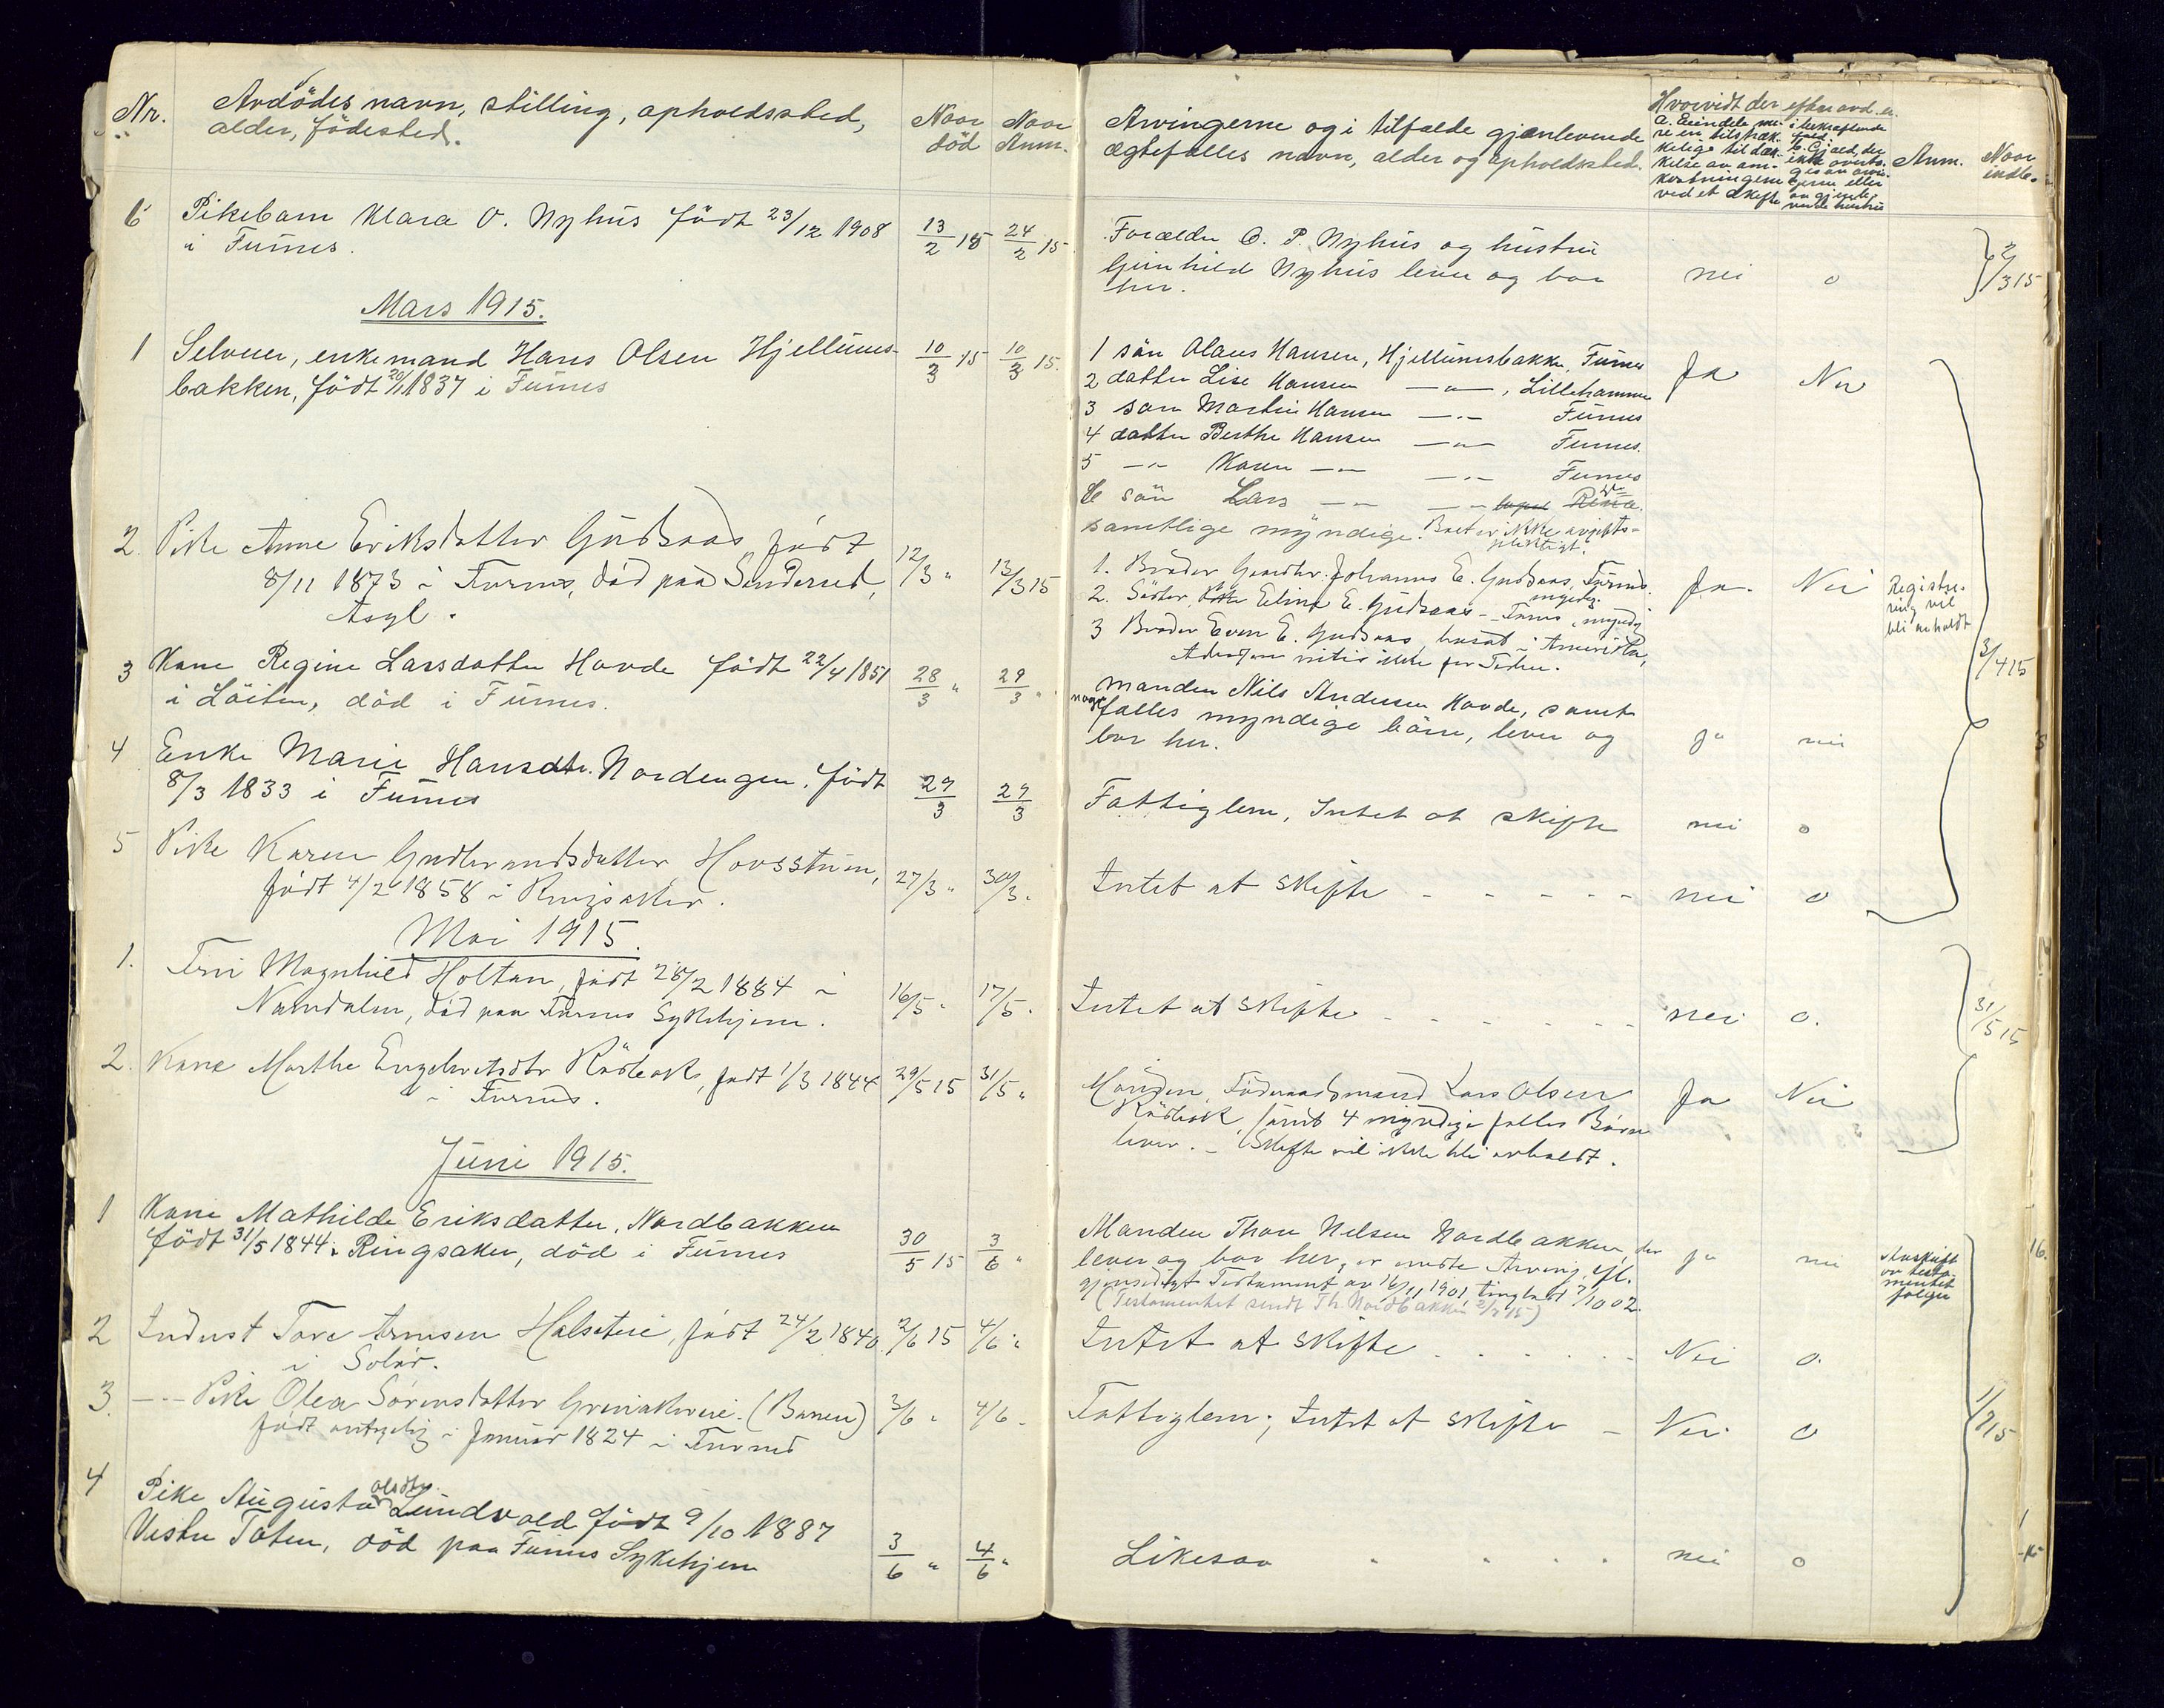 Nr. Avdödes navn, stilling, opholdssted,
alder, födested.
Naar död
Naar Anm.
Arvingerne og i tilfælde gjenlevende
ægtefælles navn, alder og opholdssted.
Hvorvidt der efter avd. er
Anm.
Naar indb.
6 Pikebarn Klara O. Nyhus födt 23/12 1908
i Furnes.
13/2 15 24/2 15
Forældre O. P. Nyhus og hustru
Gunhild Nyhus lever og bor
her.
nei o
Mars 1915.
1 Selveier, enkemand Hans Olsen Hjellums-
bakken, födt 20/1 1837 i Furnes
10/3 15 10/3 15.
1 sön Olaus Hansen, Hjellumsbakke, Furnes
2 datter Lise Hansen —"—, Lillehammer
3 sön Martin Hansen —"— Furnes
4 datter Berthe Hansen —"— Furnes.
5 —"— Karen —"— —"— Furnes
6 sön Lars —"— —"— Rena.
samtlige myndige. Boet er ikke avgifts-
pliktigt.
Ja Nei
2. Pike Anne Eriksdatter Gudsaas födt
8/11 1873 i Furnes, död paa Sinderud,
Asyl.
12/3 " 13/3 15
1. Broder Gaardbr. Johannes E. Gudsaas, Furnes
myndig.
2. Söster, Eline E. Gudsaas - Furnes, myndig
3 Broder Even E. Gudsaas, bosat i Amerika,
Adressen vites ikke for Tiden.
Ja. Nei
Registre-
ring vil
bli avholdt
3/4 15
3 Kone Regine Larsdatter Hovde födt 22/4 1851
i Löiten, död i Furnes.
28/3 " 29/3 "
manden Nils Andersen Hovde, samt
nogle fælles myndige börn, lever og
bor her.
ja nei
4 Enke Marie Hansdtr. Nordengen, födt
8/3 1833 i Furnes
29/3 29/3
Fattiglem, Intet at skifte
nei o
5 Pike Karen Gudbrandsdatter Hovsstuen,
födt 4/2 1858 i Ringsaker.
27/3 " 30/3.
Intet at skifte - - - - -
nei o
Mai 1915.
1. Fru Magnhild Holtan, födt 28/2 1884 i
Namdalen, död paa Furnes Sykehjem.
16/5 " 17/5.
Intet at skifte - - - - -
nei o.
31/5 15
2. Kone Marthe Engebretsdtr Rödbak, födt 1/3 1844
i Furnes.
29/5 15 31/5 "
Manden, Föderaadsmand Lars Olsen
Rödbak, samt 4 myndige fælles Börn
lever. - Skifte vil ikke bli avholdt.
Ja Nei
Juni 1915.
1 Kone Mathilde Eriksdatter, Nordbakken
födt 31/5 1844 i Ringsaker, död i Furnes
30/5 15 3/6 "
Manden Thor Nelsen Nordbakken, der
lever og bor her, er eneste Arving, efl.
gjensidigt Testament av 16/11 1901, tinglæst 7/10 02.
(Testamentet sendt Th. Nordbakken 2/7 15)
ja nei
Avskrift
av testa-
mentet
følger
2 Indust Tore Arnesen Halseteie, födt 24/2 1840
i Solör.
2/6 15 4/6 "
Intet at skifte - - - - -
Nei o.
3. - - - Pike Olea Sörensdatter Greviakereie. (Banen)
födt antagelig i Januar 1824 i Furnes
3/6 " 4/6 -
Fattiglem; Intet at skifte -
Nei o
1/7 15
4 Pike Augusta Olsdtr. Lundvold födt 9/10 1887
Vestre Toten, död paa Furnes Sykehjem
3/6 " 4/6 "
Likesaa " " "
nei o